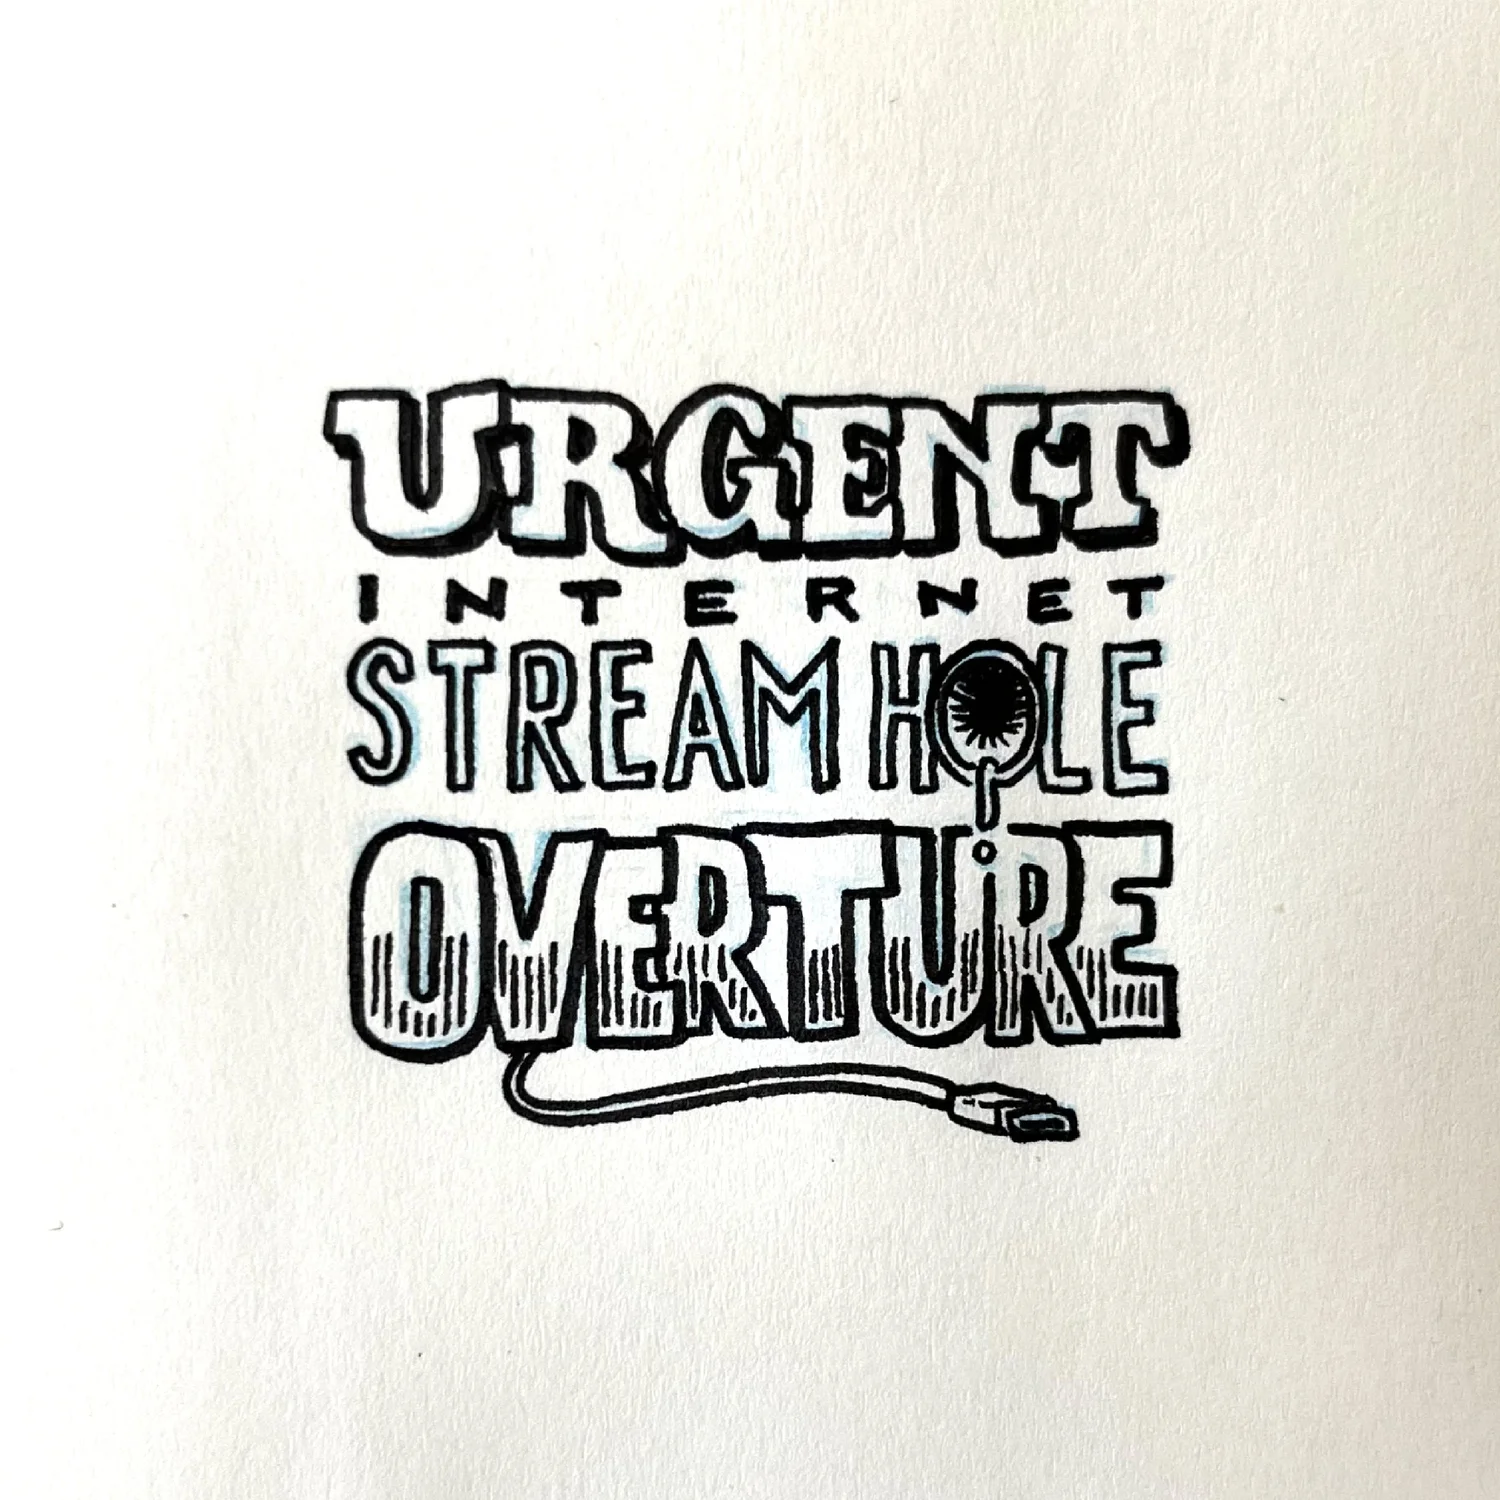 URGENT
INTERNET
STREAM HOLE
OVERTURE